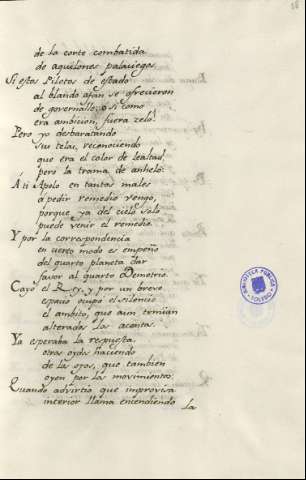 de la corte combatida
de aquilones palaciegos.
Si estos Pilotos de estado
al blando afan se ofrecieron
de governalle, o si como
era ambicion, fuera zelo!
Pero yo desbaratando
sus telas, reconociendo
que era el color de lealtad,
pero la trama de anhelo:
A ti Apolo en tantos males
a pedir remedio vengo,
porque ya del cielo solo
puede venir el remedio.
Y por la correspondencia
en cierto modo es empeño
del quarto planeta dar
favor al quarto Demetrio.
Cayó el Rey, y por un breve
espacio ocupó el silencio
el ambito, que aun temian
alterados los acentos.
Ya esperaba la respuesta
otros oydos haciendo
de los ojos, que tambien
oyen por los movimientos:
Quando advirtio que improvisa
interior llama encendiendo
la
BIBLIOTECA PUBLICA
TOLEDO